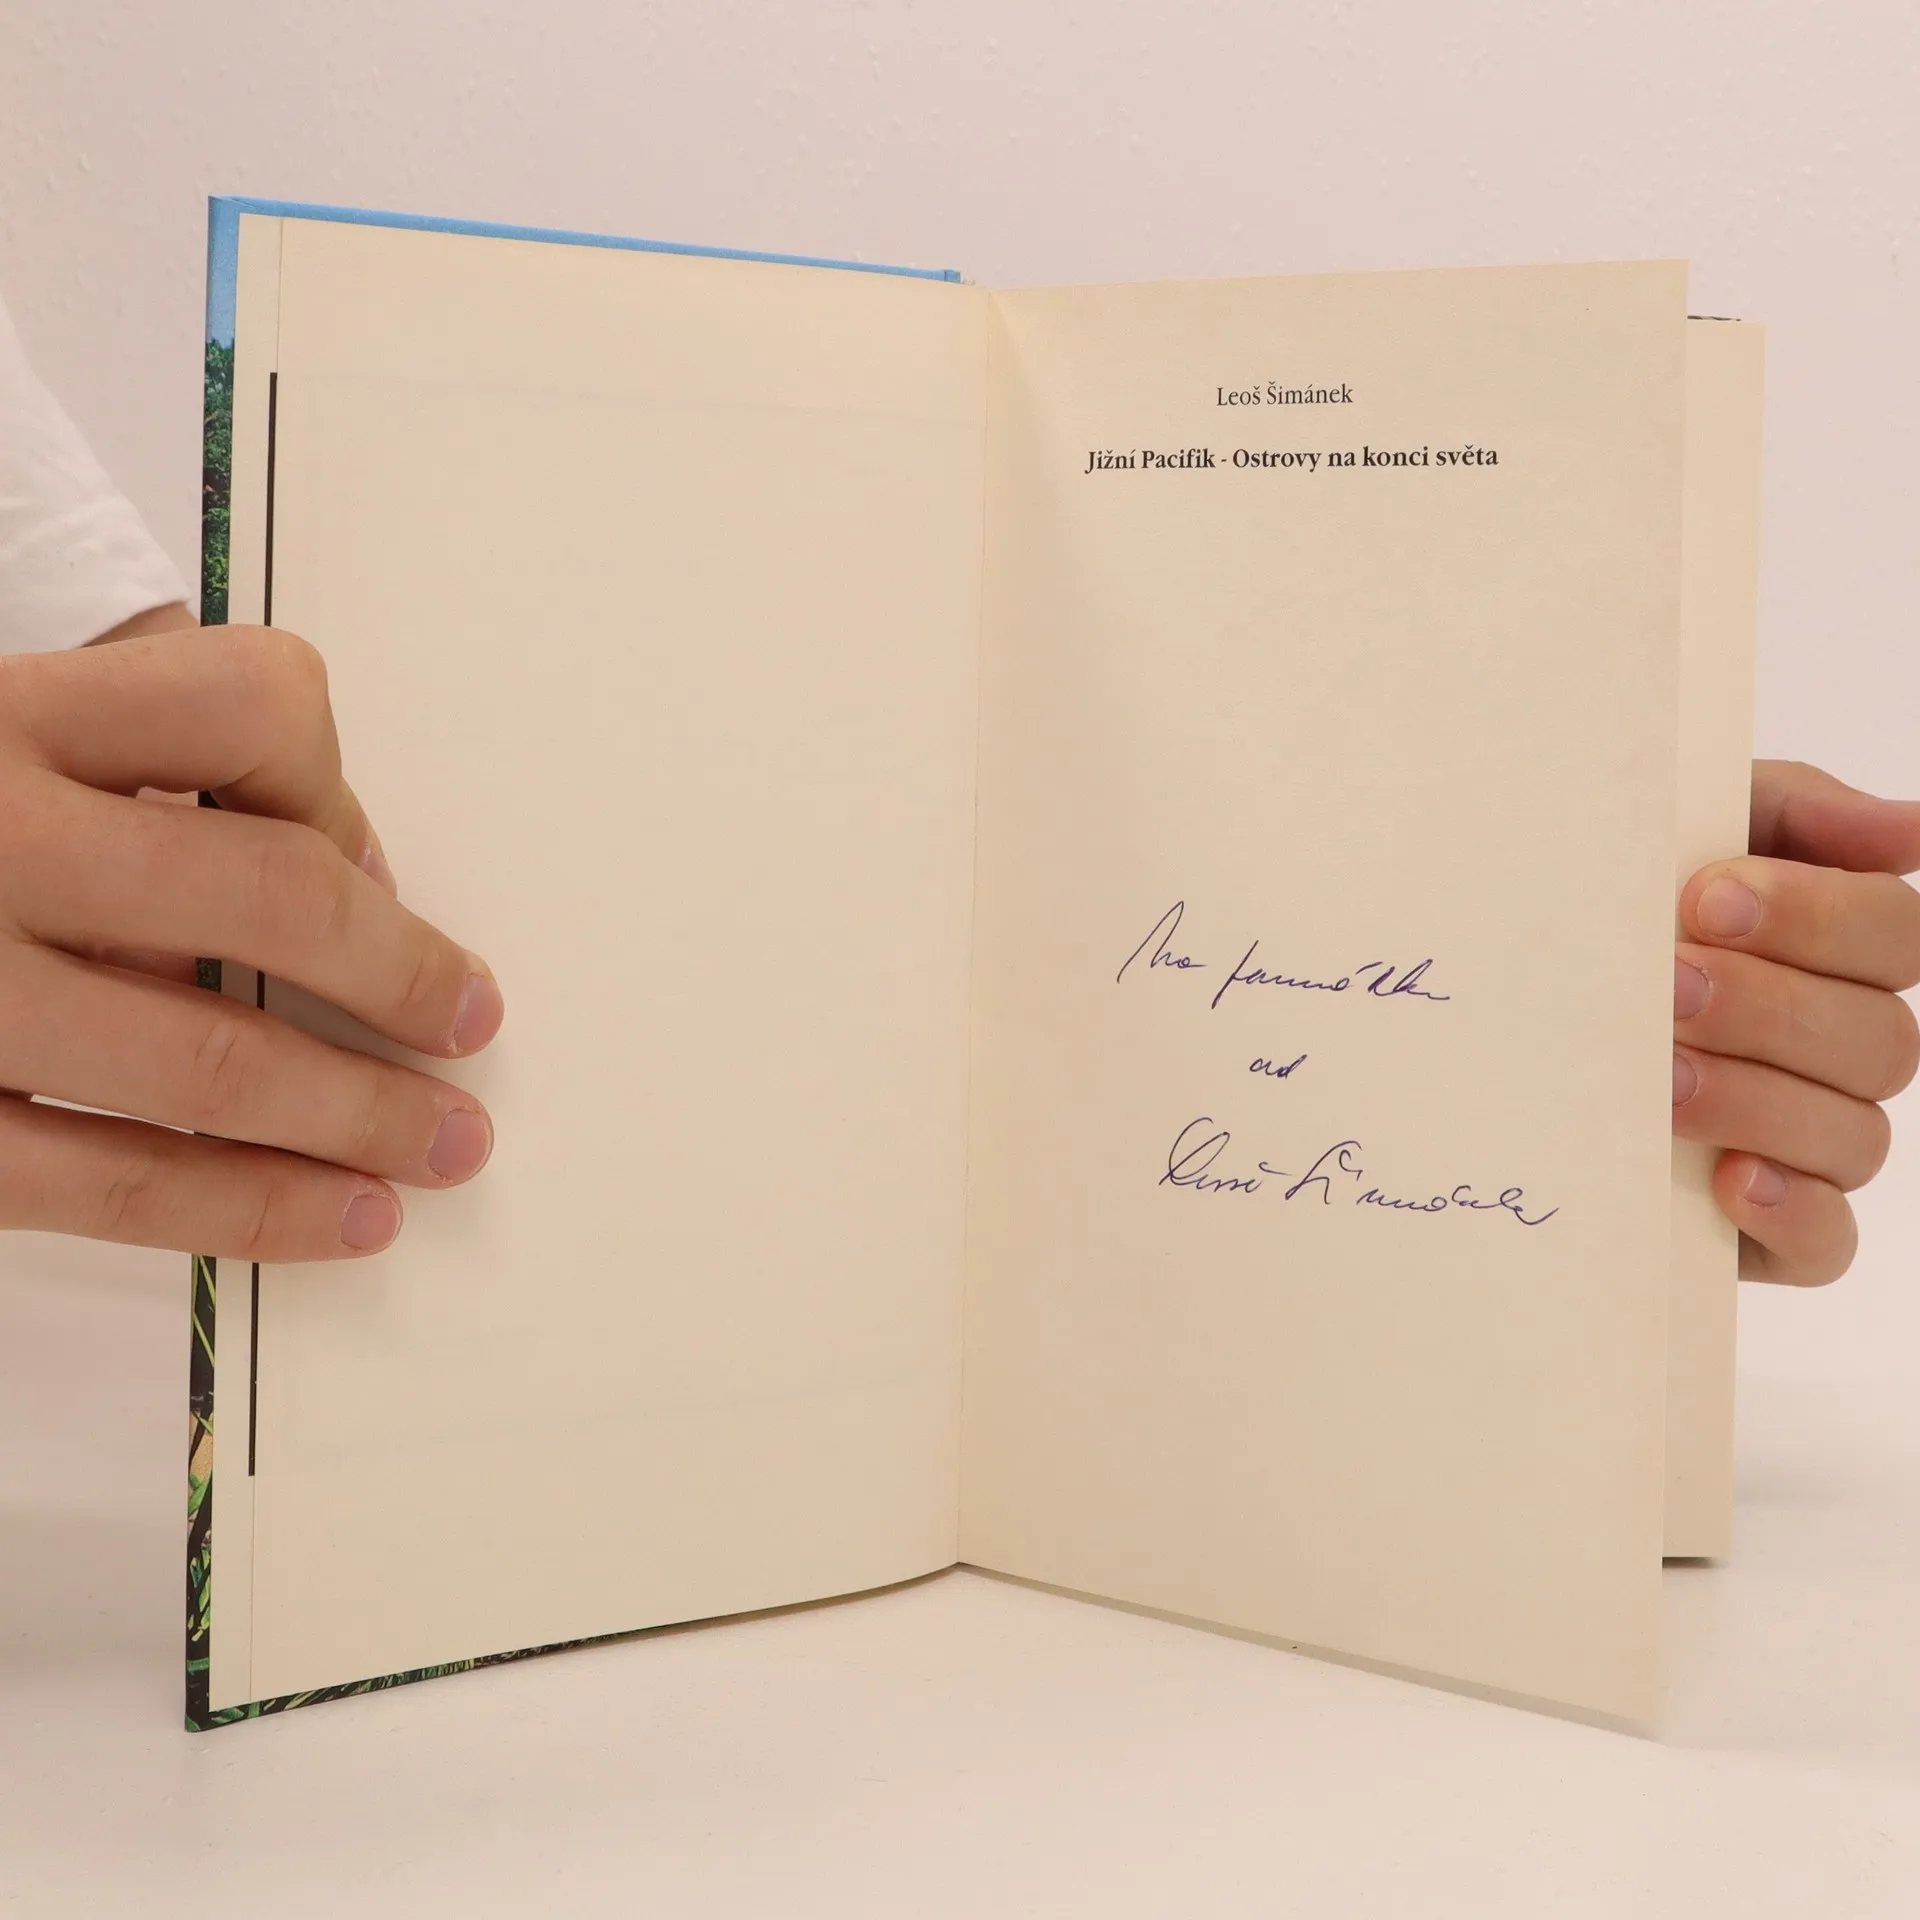 Leoš Šimánek
Jižní Pacifik - Ostrovy na konci světa
Na památku
od
Leoš Šimánek